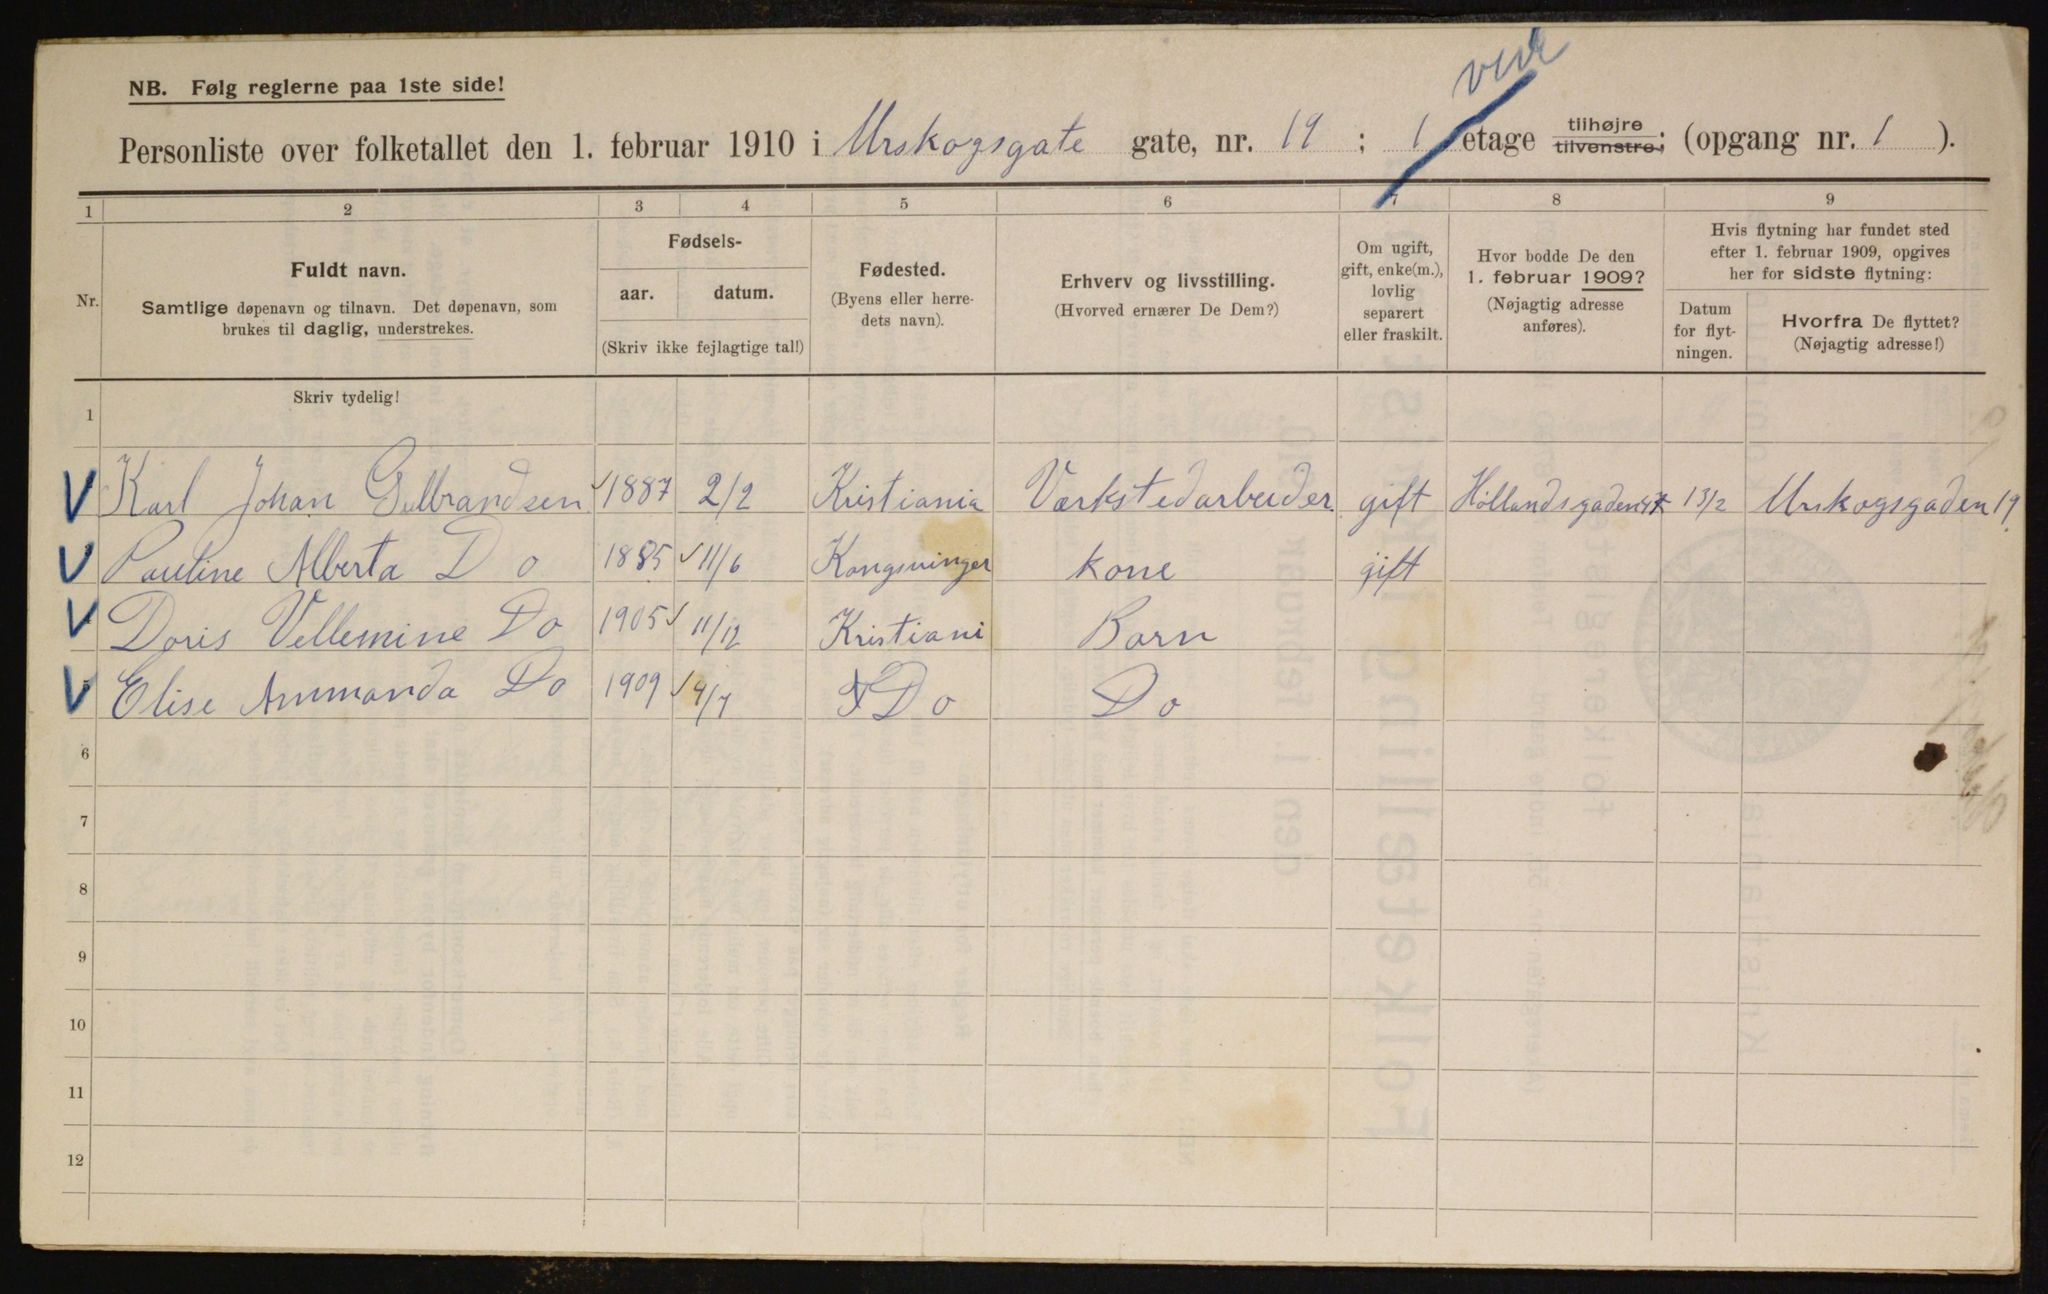 vend
NB. Følg reglerne paa 1ste side!
Personliste over folketallet den 1. februar 1910 i Urskogsgate gate, nr. 19 ; 1 etage tilhøjre tilvenstre; (opgang nr. 1 ).
1 2 3 4 5 6 7 8 9
Nr.
Fuldt navn.
Samtlige døpenavn og tilnavn. Det døpenavn, som
brukes til daglig, understrekes.
Fødsels-
aar. datum.
(Skriv ikke fejlagtige tal!)
Fødested.
(Byens eller herre-
dets navn).
Erhverv og livsstilling.
(Hvorved ernærer De Dem?)
Om ugift,
gift, enke(m.),
lovlig
separert
eller fraskilt.
Hvor bodde De den
1. februar 1909?
(Nøjagtig adresse
anføres).
Hvis flytning har fundet sted
efter 1. februar 1909, opgives
her for sidste flytning:
Datum
for flyt-
ningen.
Hvorfra De flyttet?
(Nøjagtig adresse!)
Skriv tydelig!
1
V Karl Johan Gulbrandsen 1887 2/2 Kristiania Værkstedarbeider gift Hollandsgaden 13/2 Urskogsgaden 19
V Pauline Alberta Do 1885 11/6 Kongsvinger kone gift
V Doris Vellemine Do 1905 11/12 Kristiani Barn
V Elise Ammanda Do 1909 4/7 Do Do
6
7
8
9
10
11
12